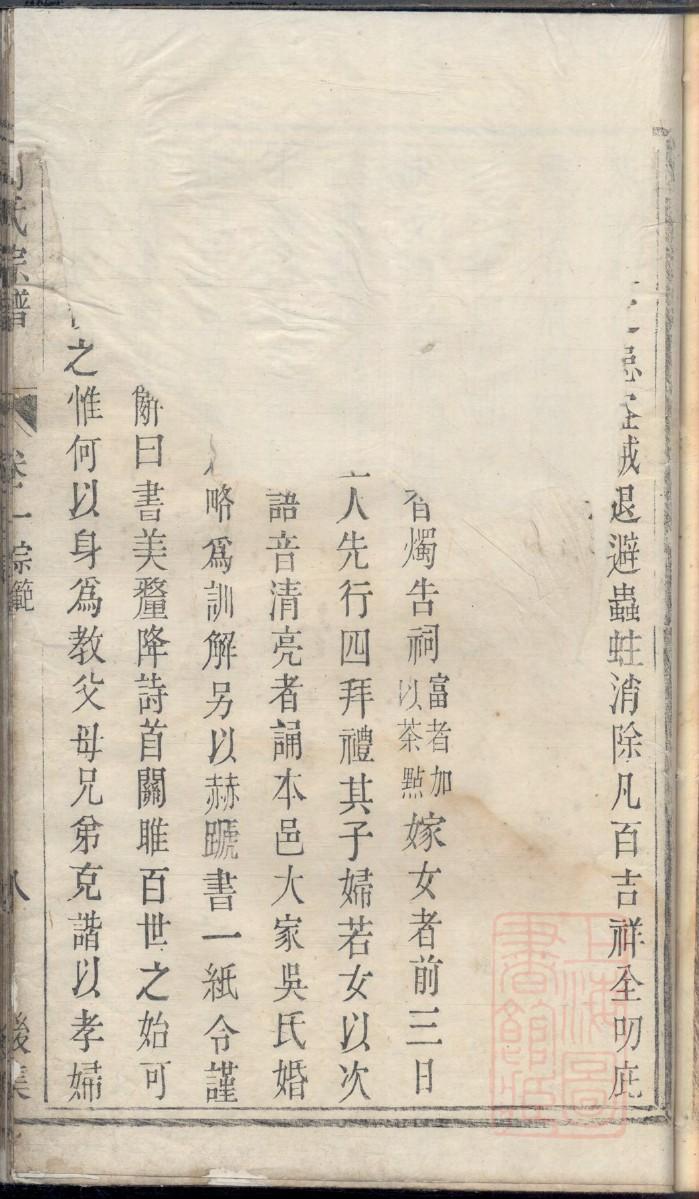 退避蟲蛀消除凡百吉祥全叨庇
燭告祠富者加以茶點嫁女者前三日
人先行四拜禮其子婦若女以次
語音清亮者誦本邑大家吳氏婚
略爲訓解另以赫蹏書一紙令謹
曰書美釐降詩首關雎百世之始可
之惟何以身爲教父母兄弟克諧以孝婦
氏宗譜
卷一
宗範
八
後集
上海圖書館藏